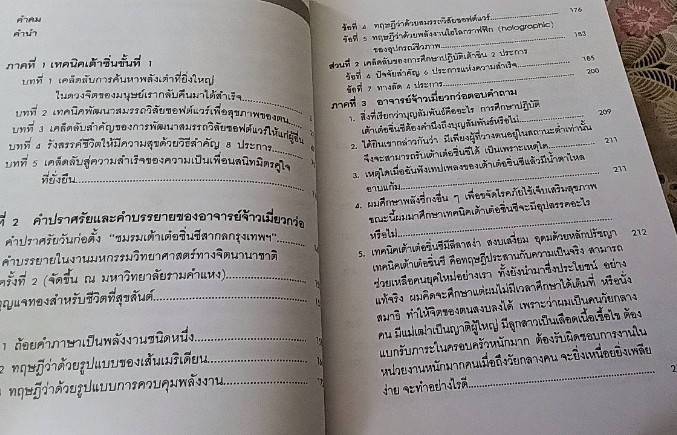 คำคม
คำนำ
ภาคที่ 1 เทคนิคเต้าซิ่นขั้นที่ 1
บทที่ 1 เคล็ดลับการค้นหาพลังเต๋าที่ยิ่งใหญ่
ในดวงจิตของมนุษย์เรากลับคืนมาได้สำเร็จ
บทที่ 2 เทคนิคพัฒนาสมรรถวิสัยซอฟต์แวร์เพื่อสุขภาพของตน
บทที่ 3 เคล็ดลับสำคัญของการพัฒนาสมรรถวิสัยซอฟต์แวร์ให้แก่ผู้อื่น
บทที่ 4 รังสรรค์ชีวิตให้มีความสุขด้วยวิธีสำคัญ 8 ประการ
บทที่ 5 เคล็ดลับสู่ความสำเร็จของความเป็นเพื่อนสนิทมิตรคู่ใจ
ที่ยั่งยืน
ที่ 2 คำปราศรัยและคำบรรยายของอาจารย์จ้าวเมี่ยวกว่อ
คำปราศรัยวันก่อตั้ง "ชมรมเต้าเต๋อซิ่นซีสากลกรุงเทพฯ"
คำบรรยายในงานมหกรรมวิทยาศาสตร์ทางจิตนานาชาติ
ครั้งที่ 2 (จัดขึ้น ณ มหาวิทยาลัยรามคำแหง)
กุญแจทองสำหรับชีวิตที่สุขสันต์
1 ถ้อยคำภาษาเป็นพลังงานชนิดหนึ่ง
2 ทฤษฎีว่าด้วยรูปแบบของเส้นเมริเดียน
ทฤษฎีว่าด้วยรูปแบบการควบคุมพลังงาน
ข้อที่ 4 ทฤษฎีว่าด้วยสมรรถวิสัยซอฟต์แวร์ 176
ข้อที่ 5 ทฤษฎีว่าด้วยพลังงานโฮโลกราฟฟิก (holographic)
ของอุปกรณ์ชีวภาพ 183
ส่วนที่ 2 เคล็ดลับของการศึกษาปฏิบัติเต้าซิ่น 2 ประการ
ข้อที่ 6 ปัจจัยสำคัญ 6 ประการแห่งความสำเร็จ 185
ข้อที่ 7 ทางลัด 4 ประการ 200
ภาคที่ 3 อาจารย์จ้าวเมี่ยวกว่อตอบคำถาม
1. สิ่งที่เรียกว่าบุญสัมพันธ์คืออะไร การศึกษาปฏิบัติ
เต้าเต๋อซิ่นซีต้องคำนึงถึงบุญสัมพันธ์หรือไม่ 209
2. ได้ยินเขากล่าวกันว่า มีเพียงผู้ที่วางตนอยู่ในสถานะต่ำเท่านั้น
จึงจะสามารถรับเต้าเต๋อซิ่นซีได้ เพราะเหตุใด 211
3. เหตุใดเมื่อฉันฟังเทปเพลงของเต้าเต๋อซิ่นซีแล้วมีน้ำตาไหล
อาบแก้ม 211
4. ผมศึกษาพลังชี่กงอื่น ๆ เพื่อขจัดโรคภัยไข้เจ็บเสริมสุขภาพ
ขณะนี้ผมมาศึกษาเทคนิคเต้าเต๋อซิ่นซีจะมีอุปสรรคอะไร
หรือไม่ 212
5. เทคนิคเต้าเต๋อซิ่นซีมีลีลาสง่า สงบเสงี่ยม อุดมด้วยหลักปรัชญา
เทคนิคเต้าเต๋อซิ่นซี คือทฤษฎีประสานกับความเป็นจริง สามารถ
ช่วยเหลือคนยุคใหม่อย่างเรา ทั้งยังนำมาซึ่งประโยชน์ อย่าง
แท้จริง ผมคิดจะศึกษาแต่ผมไม่มีเวลาศึกษาได้เต็มที่ หรือนั่ง
สมาธิ ทำให้จิตของตนสงบลงได้ เพราะว่าผมเป็นคนวัยกลาง
คน มีแม่เฒ่าเป็นญาติผู้ใหญ่ มีลูกสาวเป็นเลือดเนื้อเชื้อไข ต้อง
แบกรับภาระในครอบครัวหนักมาก ต้องรับผิดชอบการงานใน
หน่วยงานหนักมากคนเมื่อถึงวัยกลางคน จะยิ่งเหนื่อยยิ่งเพลีย
ง่าย จะทำอย่างไรดี